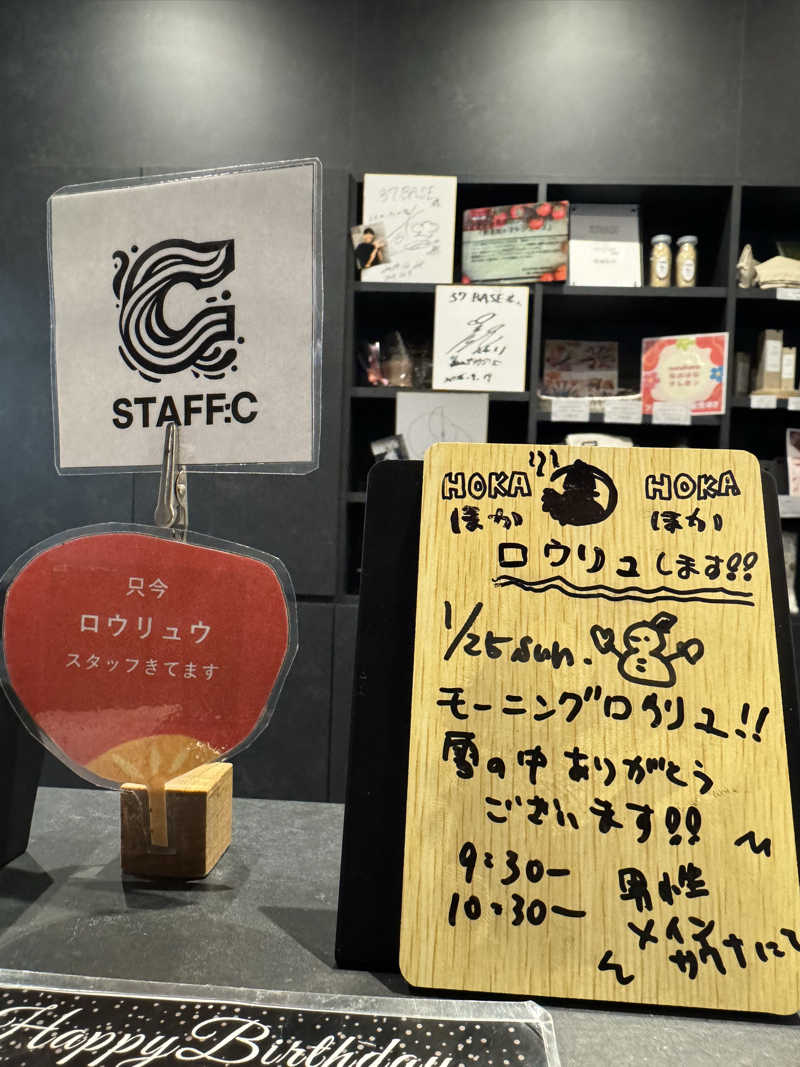 STAFF:C
只今
ロウリュウ
スタッフきてます
37 BASE
37 BASE
HOKA HOKA
ほか ほか
ロウリュします!!
1/25 sun.
モーニングロウリュ!!
雪の中ありがとう
ございます!!
9:30ー
10:30ー
男性
メイン
サウナにて
Happy Birthday